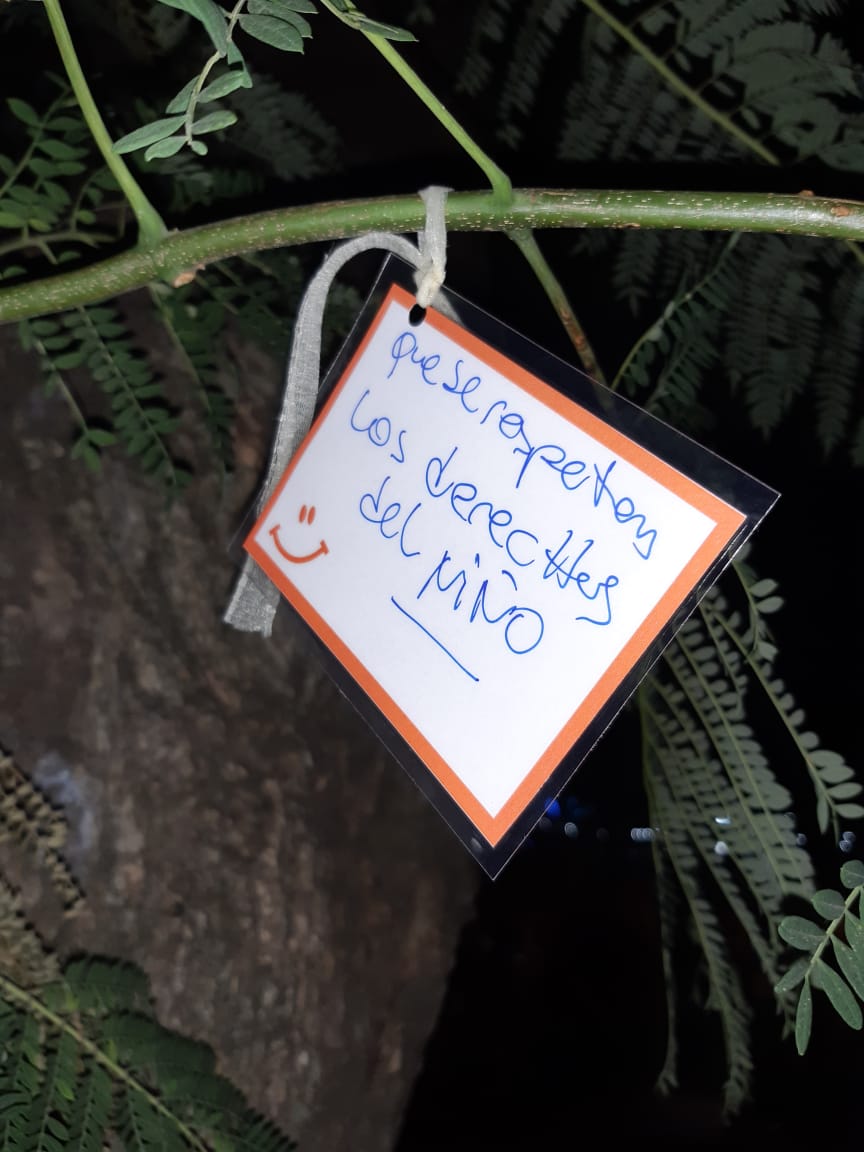 Que se respeten
los derechos
del NIÑO